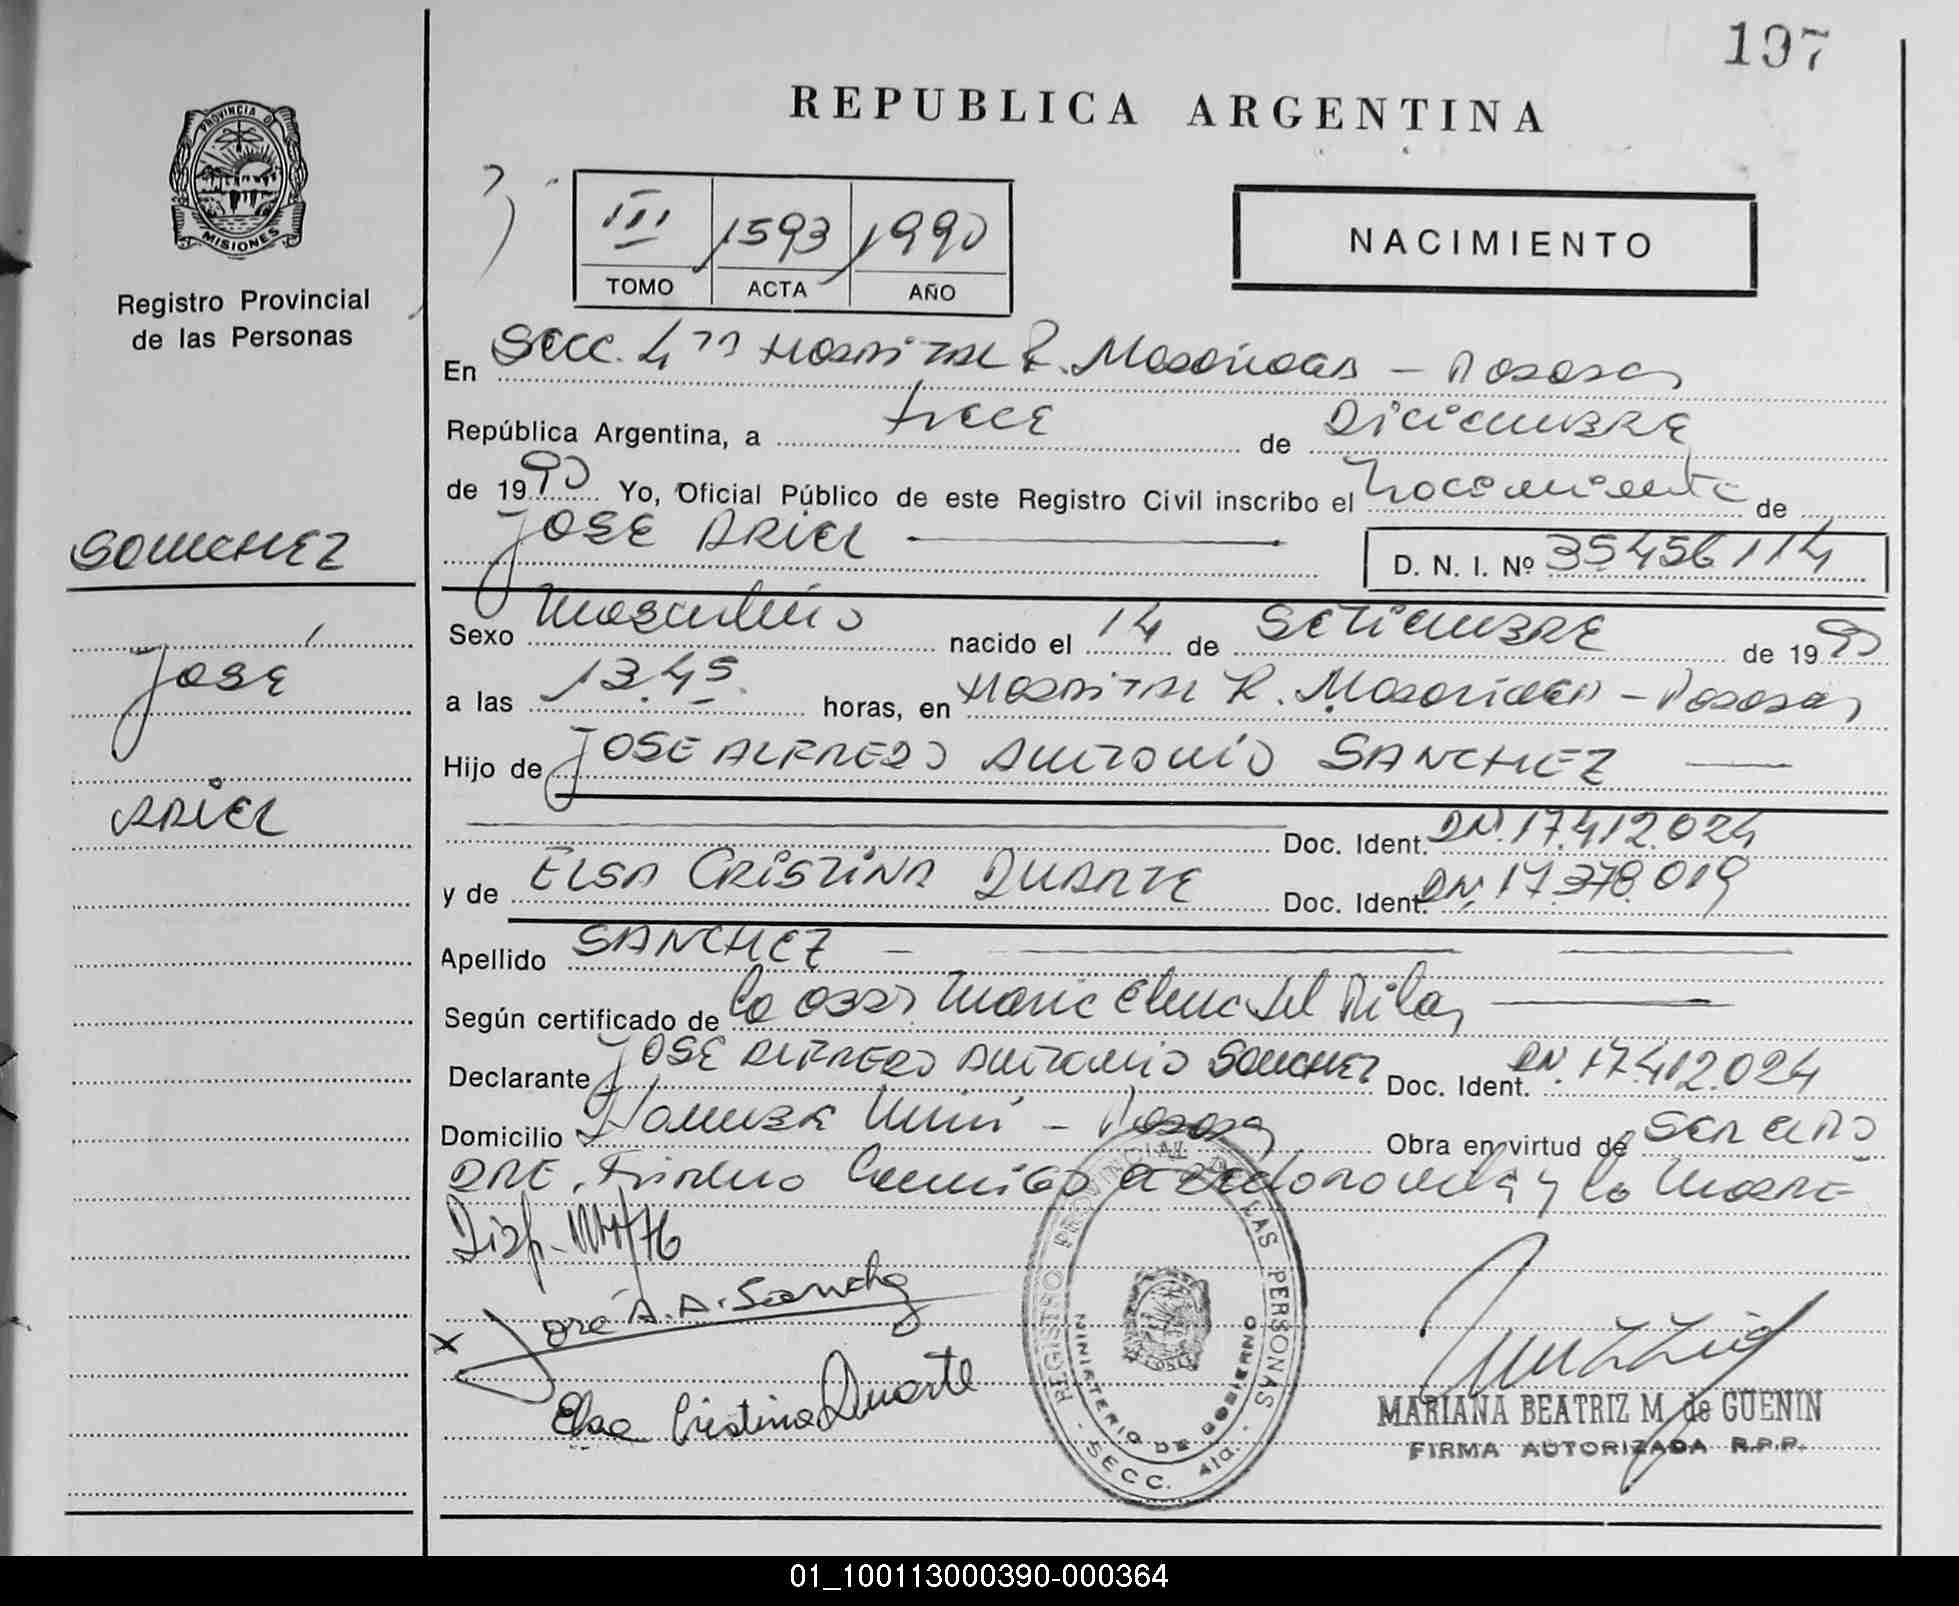 197
REPUBLICA ARGENTINA
PROVINCIA DE
MISIONES
Registro Provincial
de las Personas
III 1593 1990
TOMO ACTA AÑO
NACIMIENTO
En Secc. 4ta Hospital R. Madariaga - Posadas
República Argentina, a trece de Diciembre
de 1990 Yo, Oficial Público de este Registro Civil inscribo el Nacimiento de
JOSE ARIEL D. N. I. Nº 35456114
SANCHEZ
José
ARIEL
Sexo Masculino nacido el 14 de SETIEMBRE de 1990
a las 13.45 horas, en Hospital R. Madariaga - Posadas
Hijo de JOSE ALFREDO ANTONIO SANCHEZ
Doc. Ident. DN. 17.412.024
y de ELSA CRISTINA DUARTE Doc. Ident. DN. 17.378.019
Apellido SANCHEZ
Según certificado de la Obst. Maria Elena del Pilar
Declarante JOSE ALFREDO ANTONIO SANCHEZ Doc. Ident. DN. 17.412.024
Domicilio - Posadas Obra en virtud de SER EL PA
DRE. Firman conmigo el declarante y la Madre
Disp.
x José A. A. Sanchez
Elsa Cristina Duarte
REGISTRO PROVINCIAL DE LAS PERSONAS
MINISTERIO DE GOBIERNO
- SECC. 4ta. -
MARIANA BEATRIZ M. de GUENIN
FIRMA AUTORIZADA R.P.P.
01_100113000390-000364